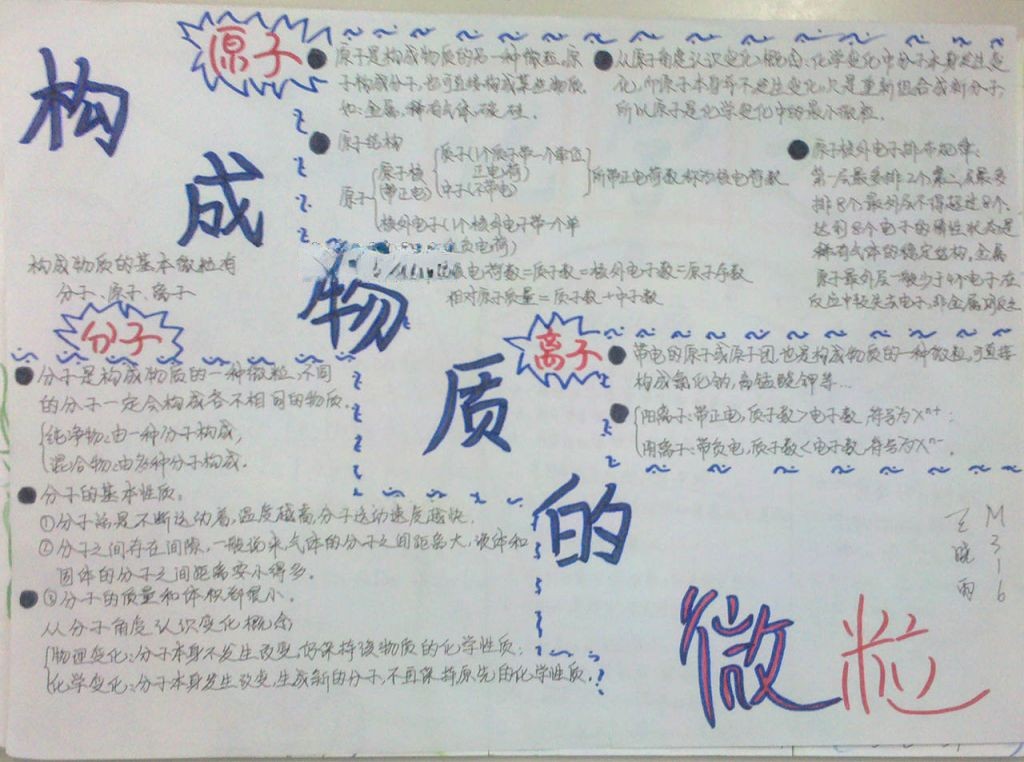 构成物质的微粒
构成物质的基本微粒有
分子、原子、离子
原子
原子是构成物质的另一种微粒,原
子构成分子,也可直接构成某些物质.
如:金属,稀有气体,碳,硅.
原子结构
原子
原子核
(带正电)
质子(1个质子带一个单位
正电荷)
中子(不带电)
所带正电荷数称为核电荷数
核外电子(1个核外电子带一个单
负电荷)
核电荷数=质子数=核外电子数=原子序数
相对原子质量=质子数+中子数
从原子角度认识变化概念:化学变化中分子本身发生变
化,所原子本身并不发生变化,只是重新组合成新分子,
所以原子是化学变化中的最小微粒.
原子核外电子排布规律:
第一层最多排2个,第二层最多
排8个,最外层不得超过8个,
达到8个电子的惰性状态是
稀有气体的稳定结构,金属
原子最外层一般少于4个电子,在
反应中较失去电子,非金属则反之
分子
分子是构成物质的一种微粒,不同
的分子一定会构成各不相同的物质.
纯净物:由一种分子构成,
混合物:由多种分子构成.
分子的基本性质.
①分子总是不断运动着,温度越高,分子运动速度越快.
②分子之间存在间隙,一般说来,气体的分子之间距离大,液体和
固体的分子之间距离要小得多.
③分子的质量和体积都很小.
从分子角度认识变化概念
物理变化:分子本身不发生改变,仍保持该物质的化学性质;
化学变化:分子本身发生改变,生成新的分子,不再保持原先的化学性质.
离子
带电的原子或原子团,也是构成物质的一种微粒,可直接
构成氯化钠,高锰酸钾等...
阳离子:带正电,质子数>电子数,符号为Xⁿ⁺;
阴离子:带负电,质子数<电子数,符号为Xⁿ⁻.
M316
王晓雨